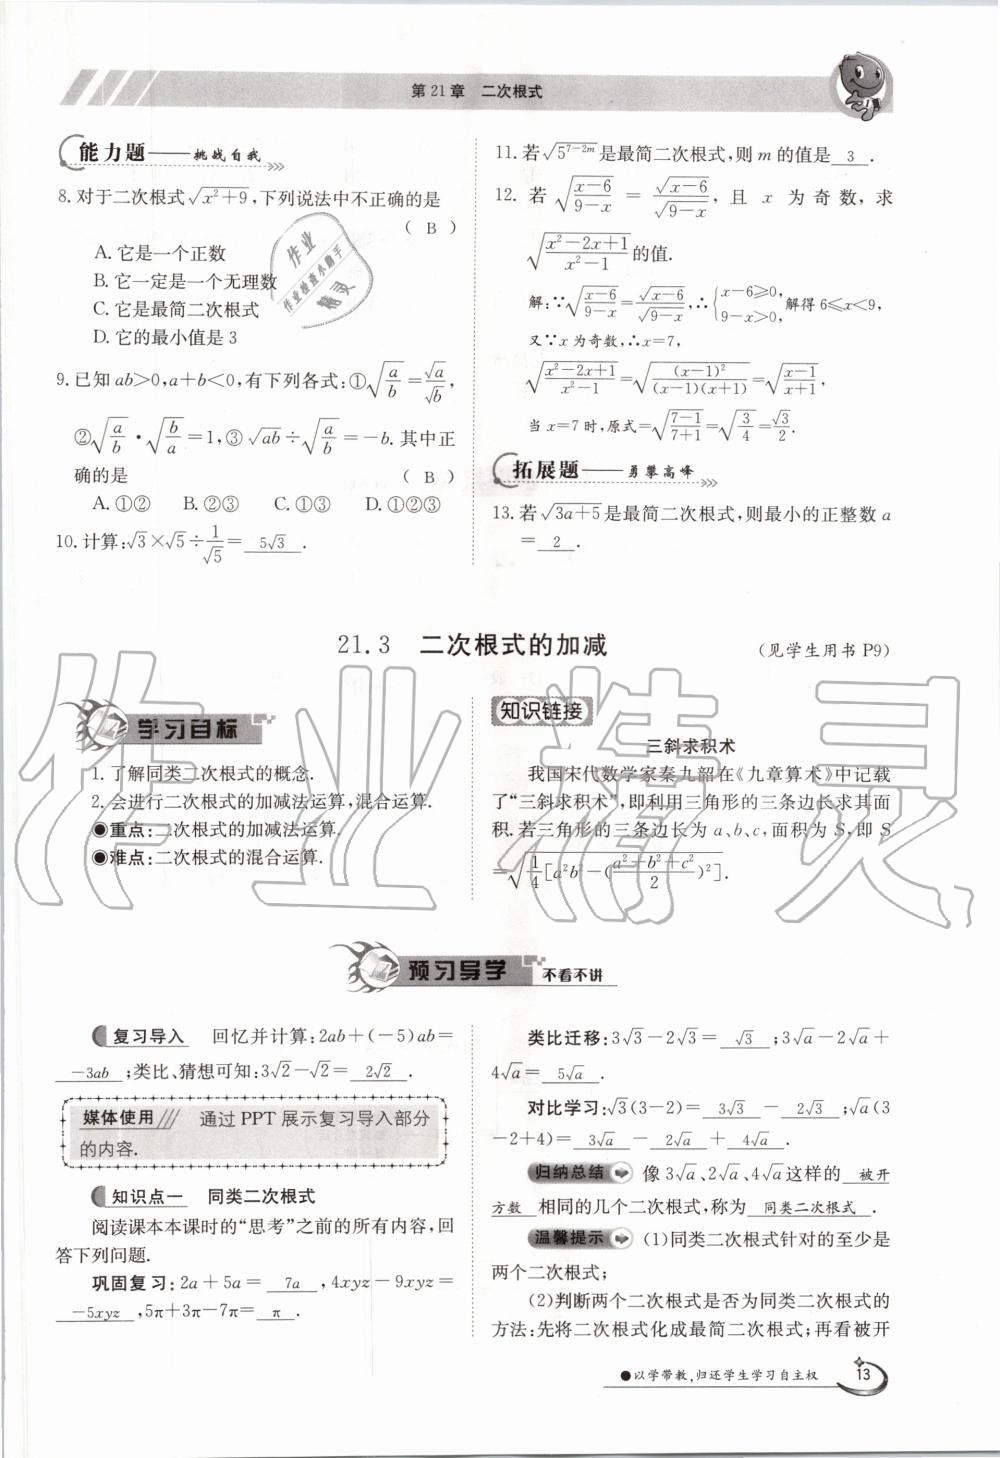 第21章 二次根式
能力题——挑战自我
8.对于二次根式√(x²+9),下列说法中不正确的是
( B )
A.它是一个正数
B.它一定是一个无理数
C.它是最简二次根式
D.它的最小值是3
9.已知ab>0,a+b<0,有下列各式:①√(a/b)=√a/√b,
②√(a/b)·√(b/a)=1,③√(ab)÷√(a/b)=-b.其中正
确的是 ( B )
A.①② B.②③ C.①③ D.①②③
10.计算:√3×√5÷1/√5= 5√3 .
11.若√(5^(7-2m))是最简二次根式,则m的值是 3 .
12.若√((x-6)/(9-x))=√(x-6)/√(9-x),且x为奇数,求
√((x²-2x+1)/(x²-1))的值.
解:∵√((x-6)/(9-x))=√(x-6)/√(9-x),∴{x-6≥0, 9-x>0,解得6≤x<9,
又∵x为奇数,∴x=7,
√((x²-2x+1)/(x²-1))=√((x-1)²/((x-1)(x+1)))=√((x-1)/(x+1)),
当x=7时,原式=√((7-1)/(7+1))=√(3/4)=√3/2.
拓展题——勇攀高峰
13.若√(3a+5)是最简二次根式,则最小的正整数a
= 2 .
21.3 二次根式的加减
(见学生用书P9)
学习目标
1.了解同类二次根式的概念.
2.会进行二次根式的加减法运算,混合运算.
●重点:二次根式的加减法运算.
●难点:二次根式的混合运算.
知识链接
三斜求积术
我国宋代数学家秦九韶在《九章算术》中记载
了“三斜求积术”,即利用三角形的三条边长求其面
积.若三角形的三条边长为a、b、c,面积为S,即S
=√(1/4[a²b²-((a²+b²+c²)/2)²]).
预习导学 不看不讲
复习导入 回忆并计算:2ab+(-5)ab=
-3ab ;类比、猜想可知:3√2-√2= 2√2 .
媒体使用 通过PPT展示复习导入部分
的内容.
知识点一 同类二次根式
阅读课本本课时的“思考”之前的所有内容,回
答下列问题.
巩固复习:2a+5a= 7a ,4xyz-9xyz=
-5xyz ,5π+3π-7π= π .
类比迁移:3√3-2√3= √3 ;3√a-2√a+
4√a= 5√a .
对比学习:√3(3-2)= 3√3 - 2√3 ;√a(3
-2+4)= 3√a - 2√a + 4√a .
归纳总结 像3√a、2√a、4√a这样的 被开
方数 相同的几个二次根式,称为 同类二次根式 .
温馨提示 (1)同类二次根式针对的至少是
两个二次根式;
(2)判断两个二次根式是否为同类二次根式的
方法:先将二次根式化成最简二次根式;再看被开
●以学带教,归还学生学习自主权
13
作业
作业检查小助手
精灵
作业精灵